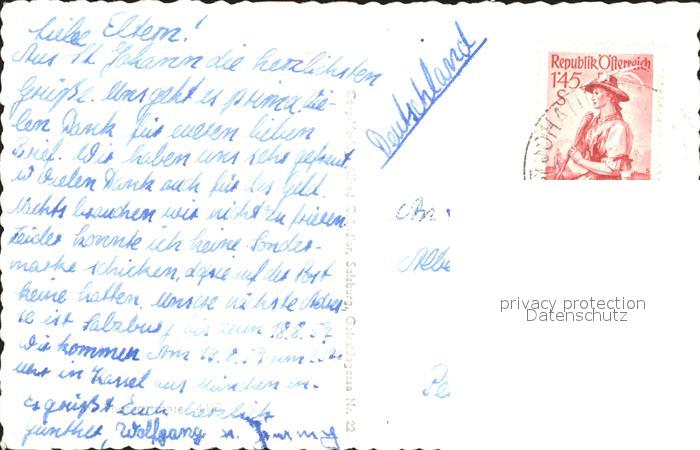 Liebe Eltern!
Aus St. Johann die herzlichsten
Grüße. Uns geht es prima, vie-
len Dank für eueren lieben
Brief. Wir haben uns sehr gefreut
u. Vielen Dank auch für das Geld.
Nachts brauchen wir nicht zu frieren.
Leider konnte ich keine Sonder-
marke schicken, da sie auf der Post
keine hatten. Unsere nächste Adres-
se ist Salzburg bis zum 18.8.57
Wir kommen am 19.8.57 um
Uhr in Kassel aus München an.
Es grüßt Euch herzlichst
Günther, Wolfgang u.
Deutschland
Republik Österreich
1'45
S
ST. JOHANN
An
Albe
privacy protection
Datenschutz
Salzburg, Nr. 32